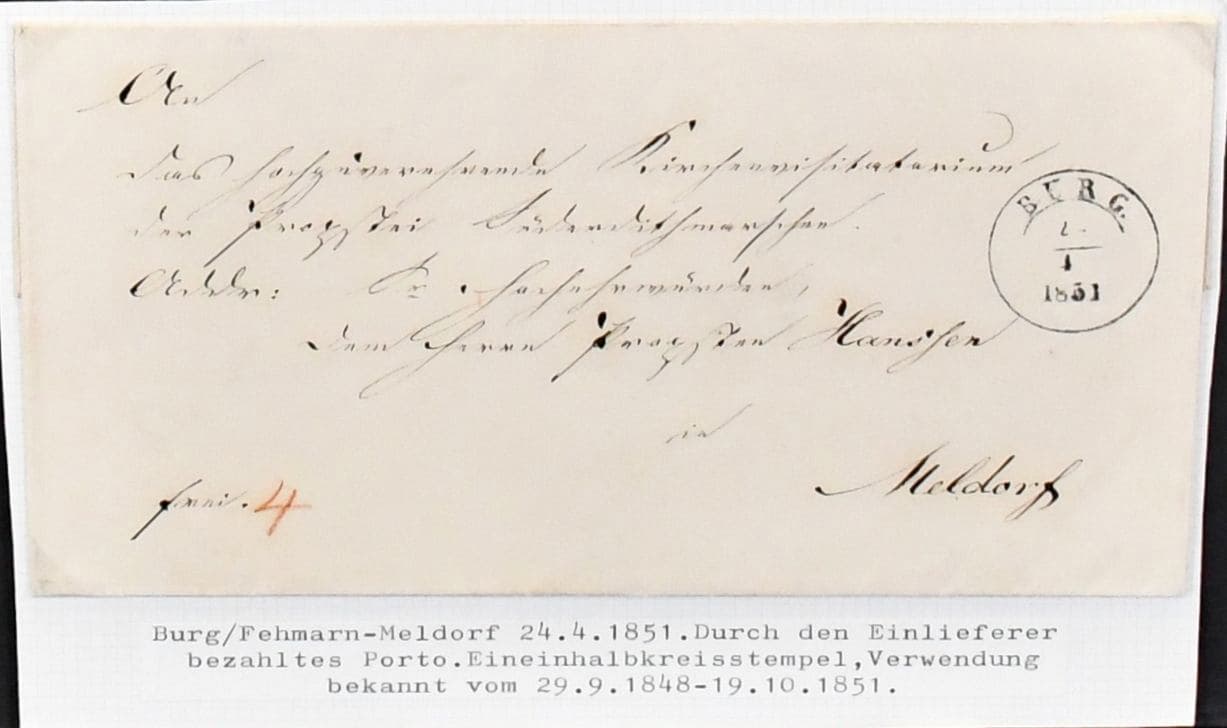 An
das hochzuverehrende Kirchenvisitatorium
der Propstei Süderdithmarschen.
Addr: Sr. Hochehrwürden,
dem Herrn Propsten Hanssen
in
Meldorf
frei. 4
BURG.
1851
Burg/Fehmarn-Meldorf 24.4.1851.Durch den Einlieferer
bezahltes Porto.Eineinhalbkreisstempel,Verwendung
bekannt vom 29.9.1848-19.10.1851.